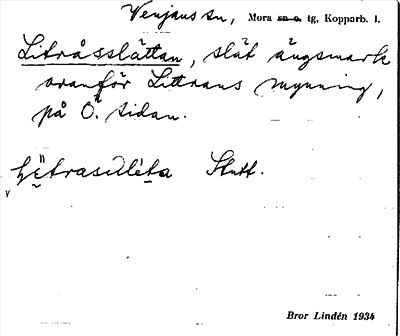 Venjans sn, Mora sn o. tg, Kopparb. l.
Litråsslättan, slät ängsmark
ovanför Littrans mynning,
på Ö. sidan.
Slutt.
Bror Lindén 1934